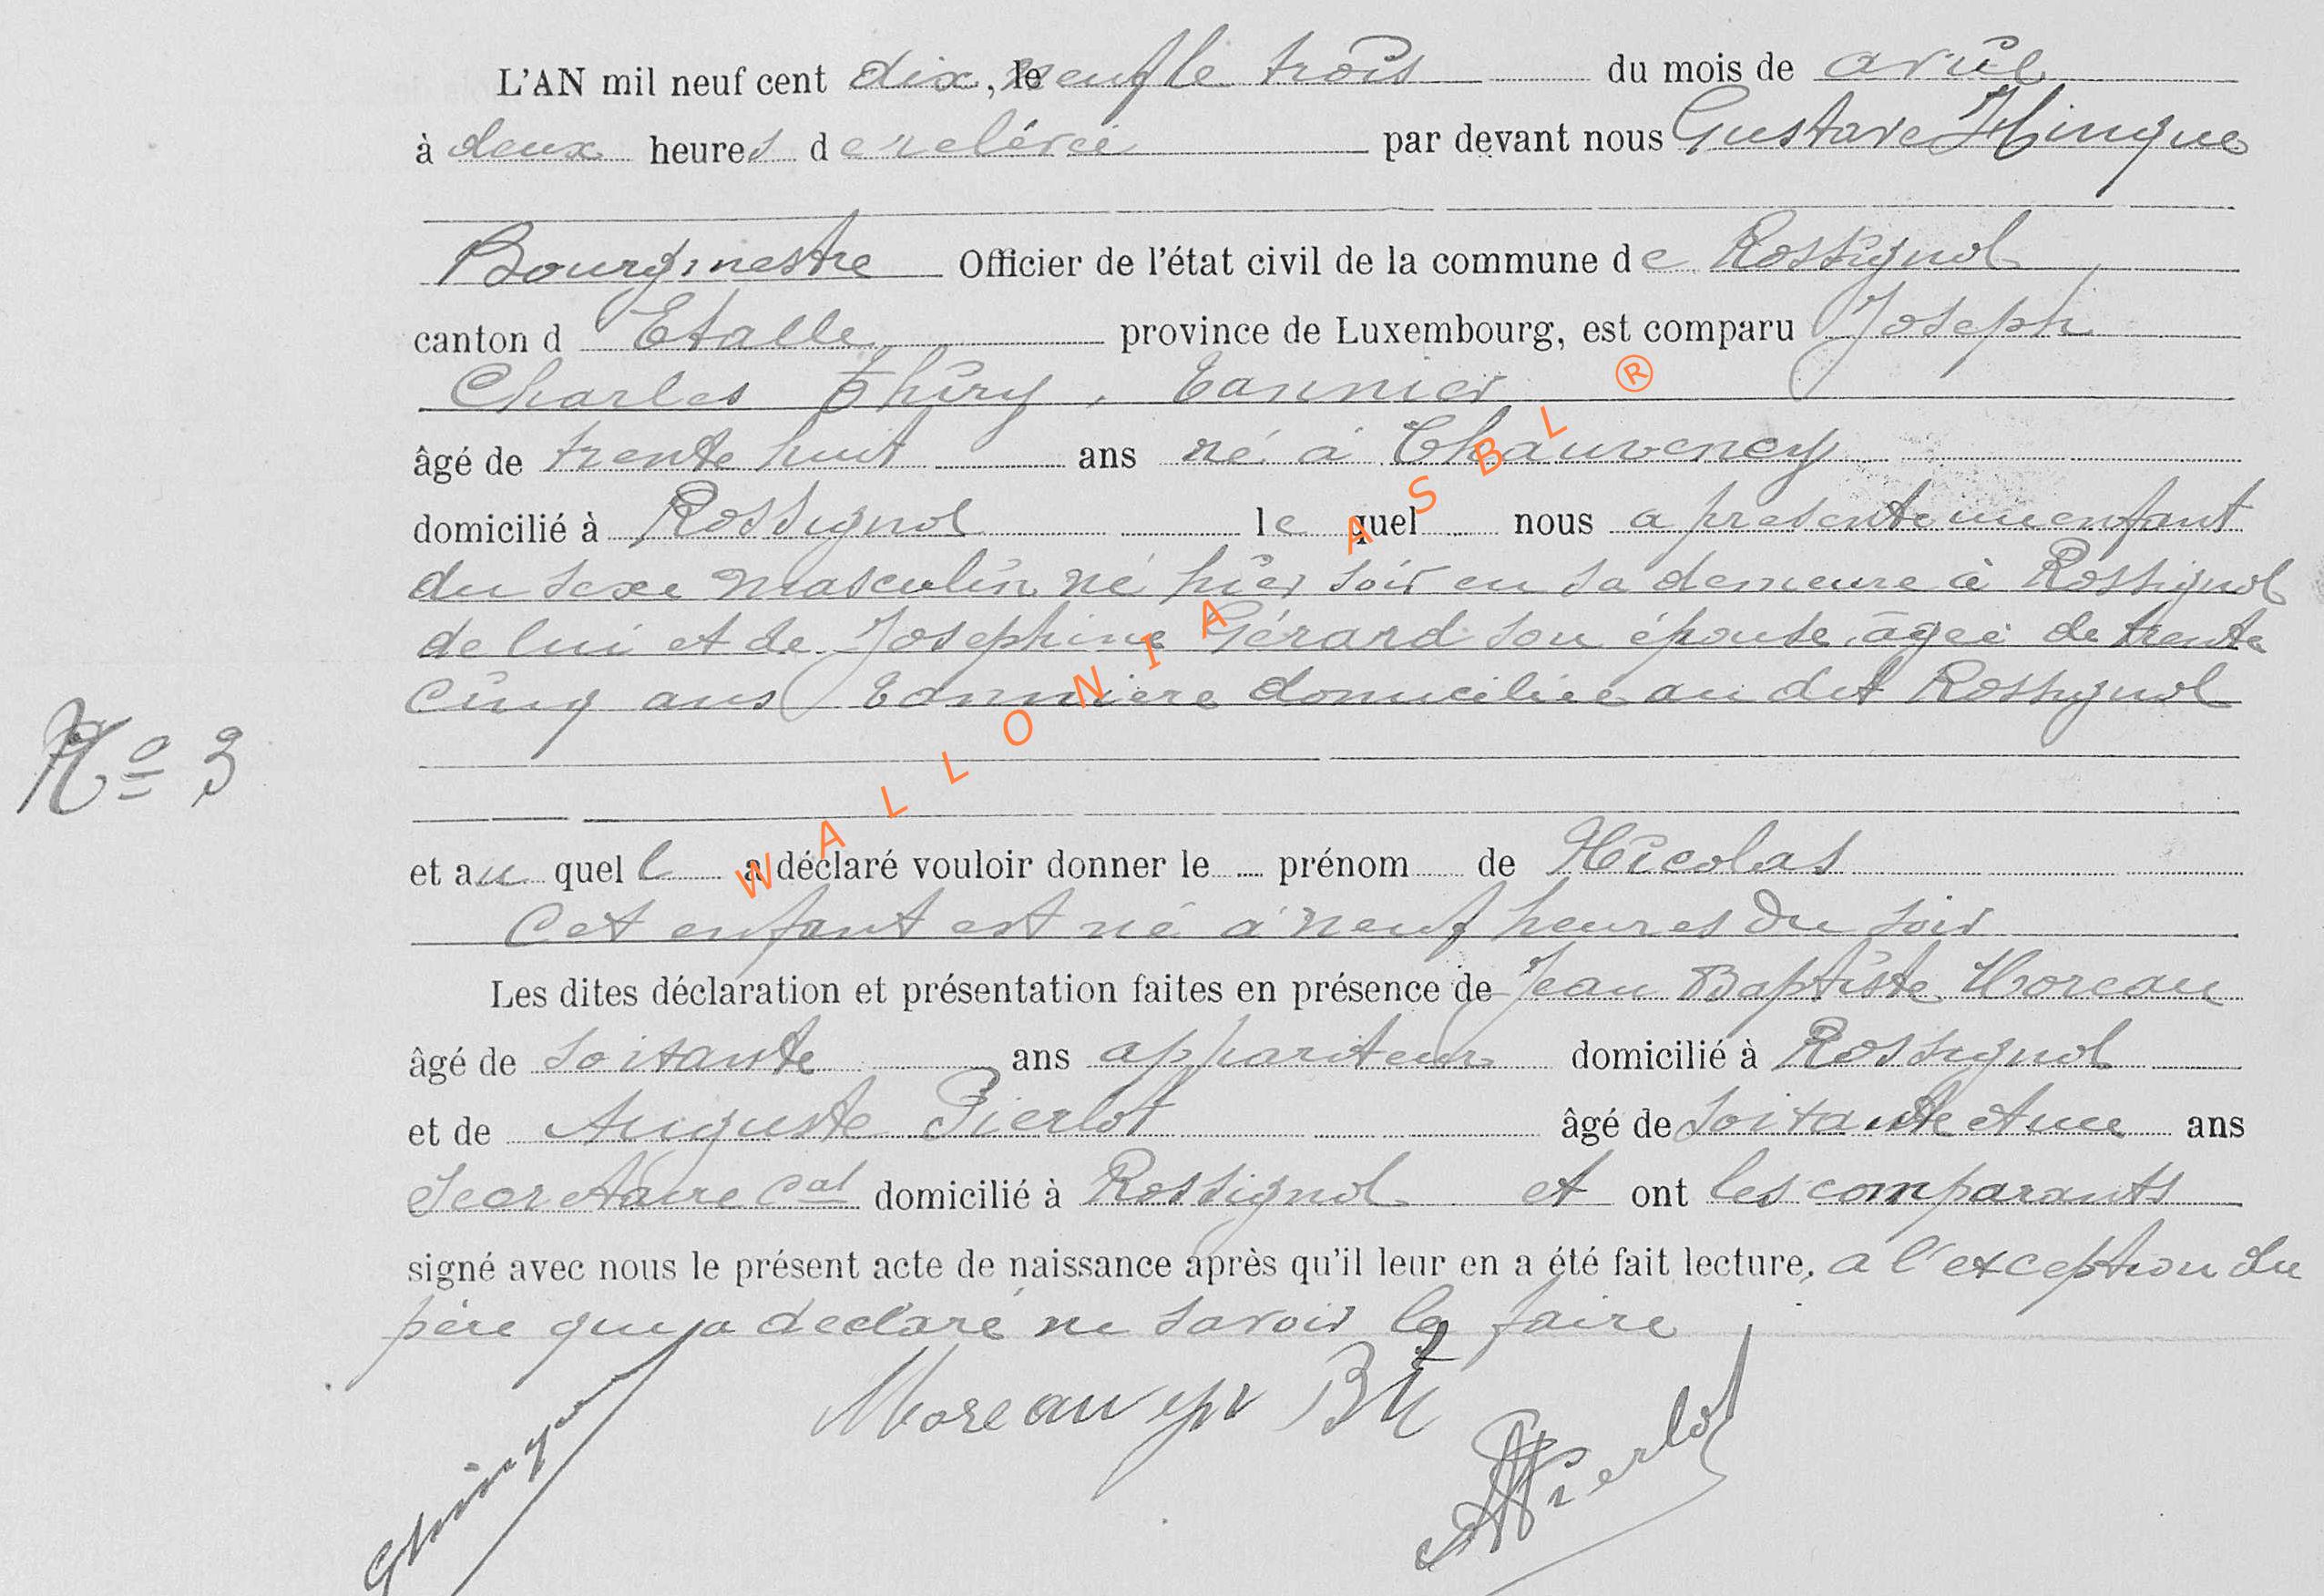 L'AN mil neuf cent dix, neuf le trois du mois de avril
à deux heures de relévée par devant nous Gustave Hinque
Bourgmestre Officier de l'état civil de la commune de Rossignol
canton d Etalle province de Luxembourg, est comparu Joseph
Charles Thiry, Vannier
âgé de trente huit ans né à Chauvency
domicilié à Rossignol le quel nous a présenté un enfant
du sexe masculin né hier soir en sa demeure à Rossignol
de lui et de Josephine Gérard son épouse, âgée de trente
cinq ans Vannière domiciliée au dit Rossignol
No 3
et au quel l a déclaré vouloir donner le prénom de Nicolas
Cet enfant est né à neuf heures du soir
Les dites déclaration et présentation faites en présence de Jean Baptiste Moreau
âgé de soixante ans appariteur domicilié à Rossignol
et de Auguste Pierlot âgé de soixante et une ans
Secretaire cal domicilié à Rossignol et ont les comparants
signé avec nous le présent acte de naissance après qu'il leur en a été fait lecture, a l'exception du
père qui a declaré ne savoir le faire
GHinque
Moreau
APierlot
WALLONIA ASBL ®